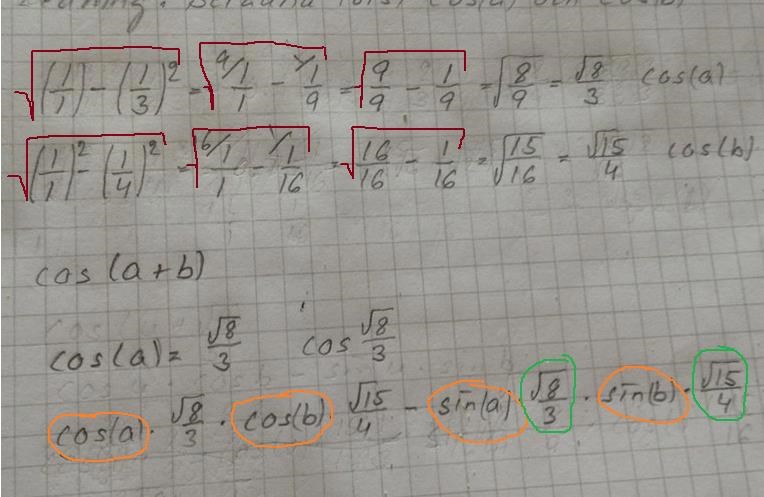 cos(a) och cos(b)
√(1/1) - (1/3)² = √9/1/1 - 1/1/9 = √9/9 - 1/9 = √8/9 = √8/3 cos(a)
√(1/1)² - (1/4)² = √6/1/1 - 1/1/16 = √16/16 - 1/16 = √15/16 = √15/4 cos(b)
cos(a+b)
cos(a) = √8/3 cos √8/3
cos(a) · √8/3 · cos(b) · √15/4 - sin(a) · √8/3 · sin(b) · √15/4